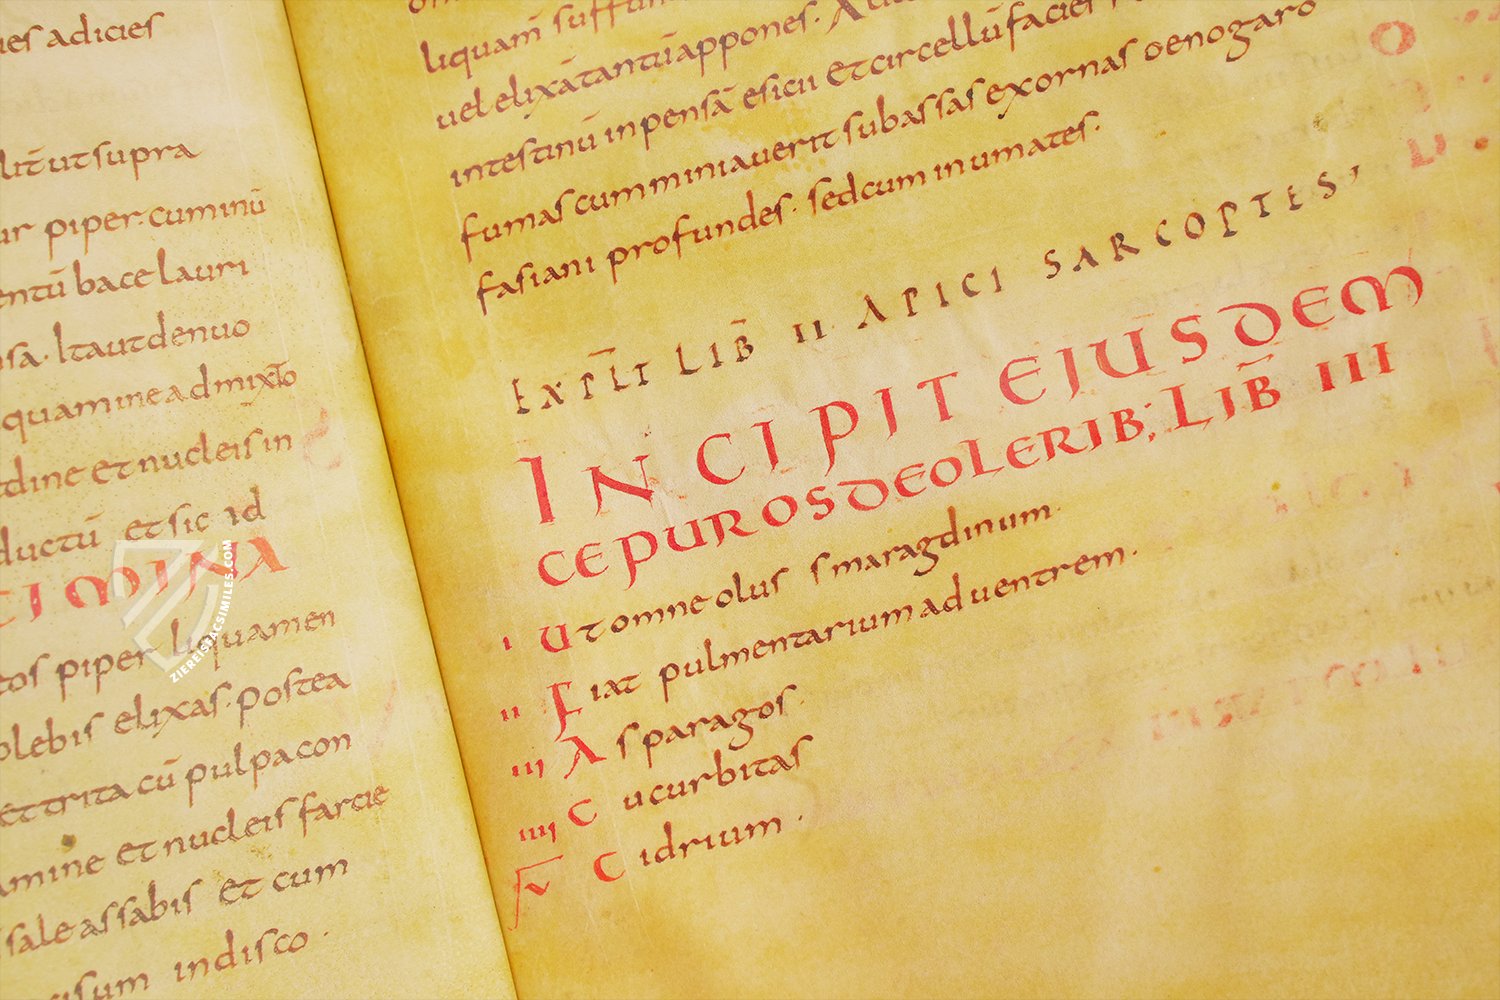 adicies
ut supra
piper. cuminū
bace lauri
Ita ut denuo
quamine admixto
et nucleis in
ductū et sic id
MINA
piper liquamen
elixas. postea
et trita cū pulpa con
amine et nucleis farcie
sale assabis et cum
in disco.
liquam̄
uel elixātantū appones.
intestinū inpensā esicii et circellū facies
fumas cum miniauerit subassas exornas oenogaro
fasiani profundes. sed cum inumates.
EXPLIT LIB̄ II APICI SARCOPTES,
INCIPIT EJUSDEM
CEPUROS DE OLERIB; LIB̄ III
I Ut omne olus smaragdinum.
II Fiat pulmentarium ad uentrem.
III Asparagos.
IIII Cucurbitas
V Cidrium.
ZIEREISFACSIMILES.COM